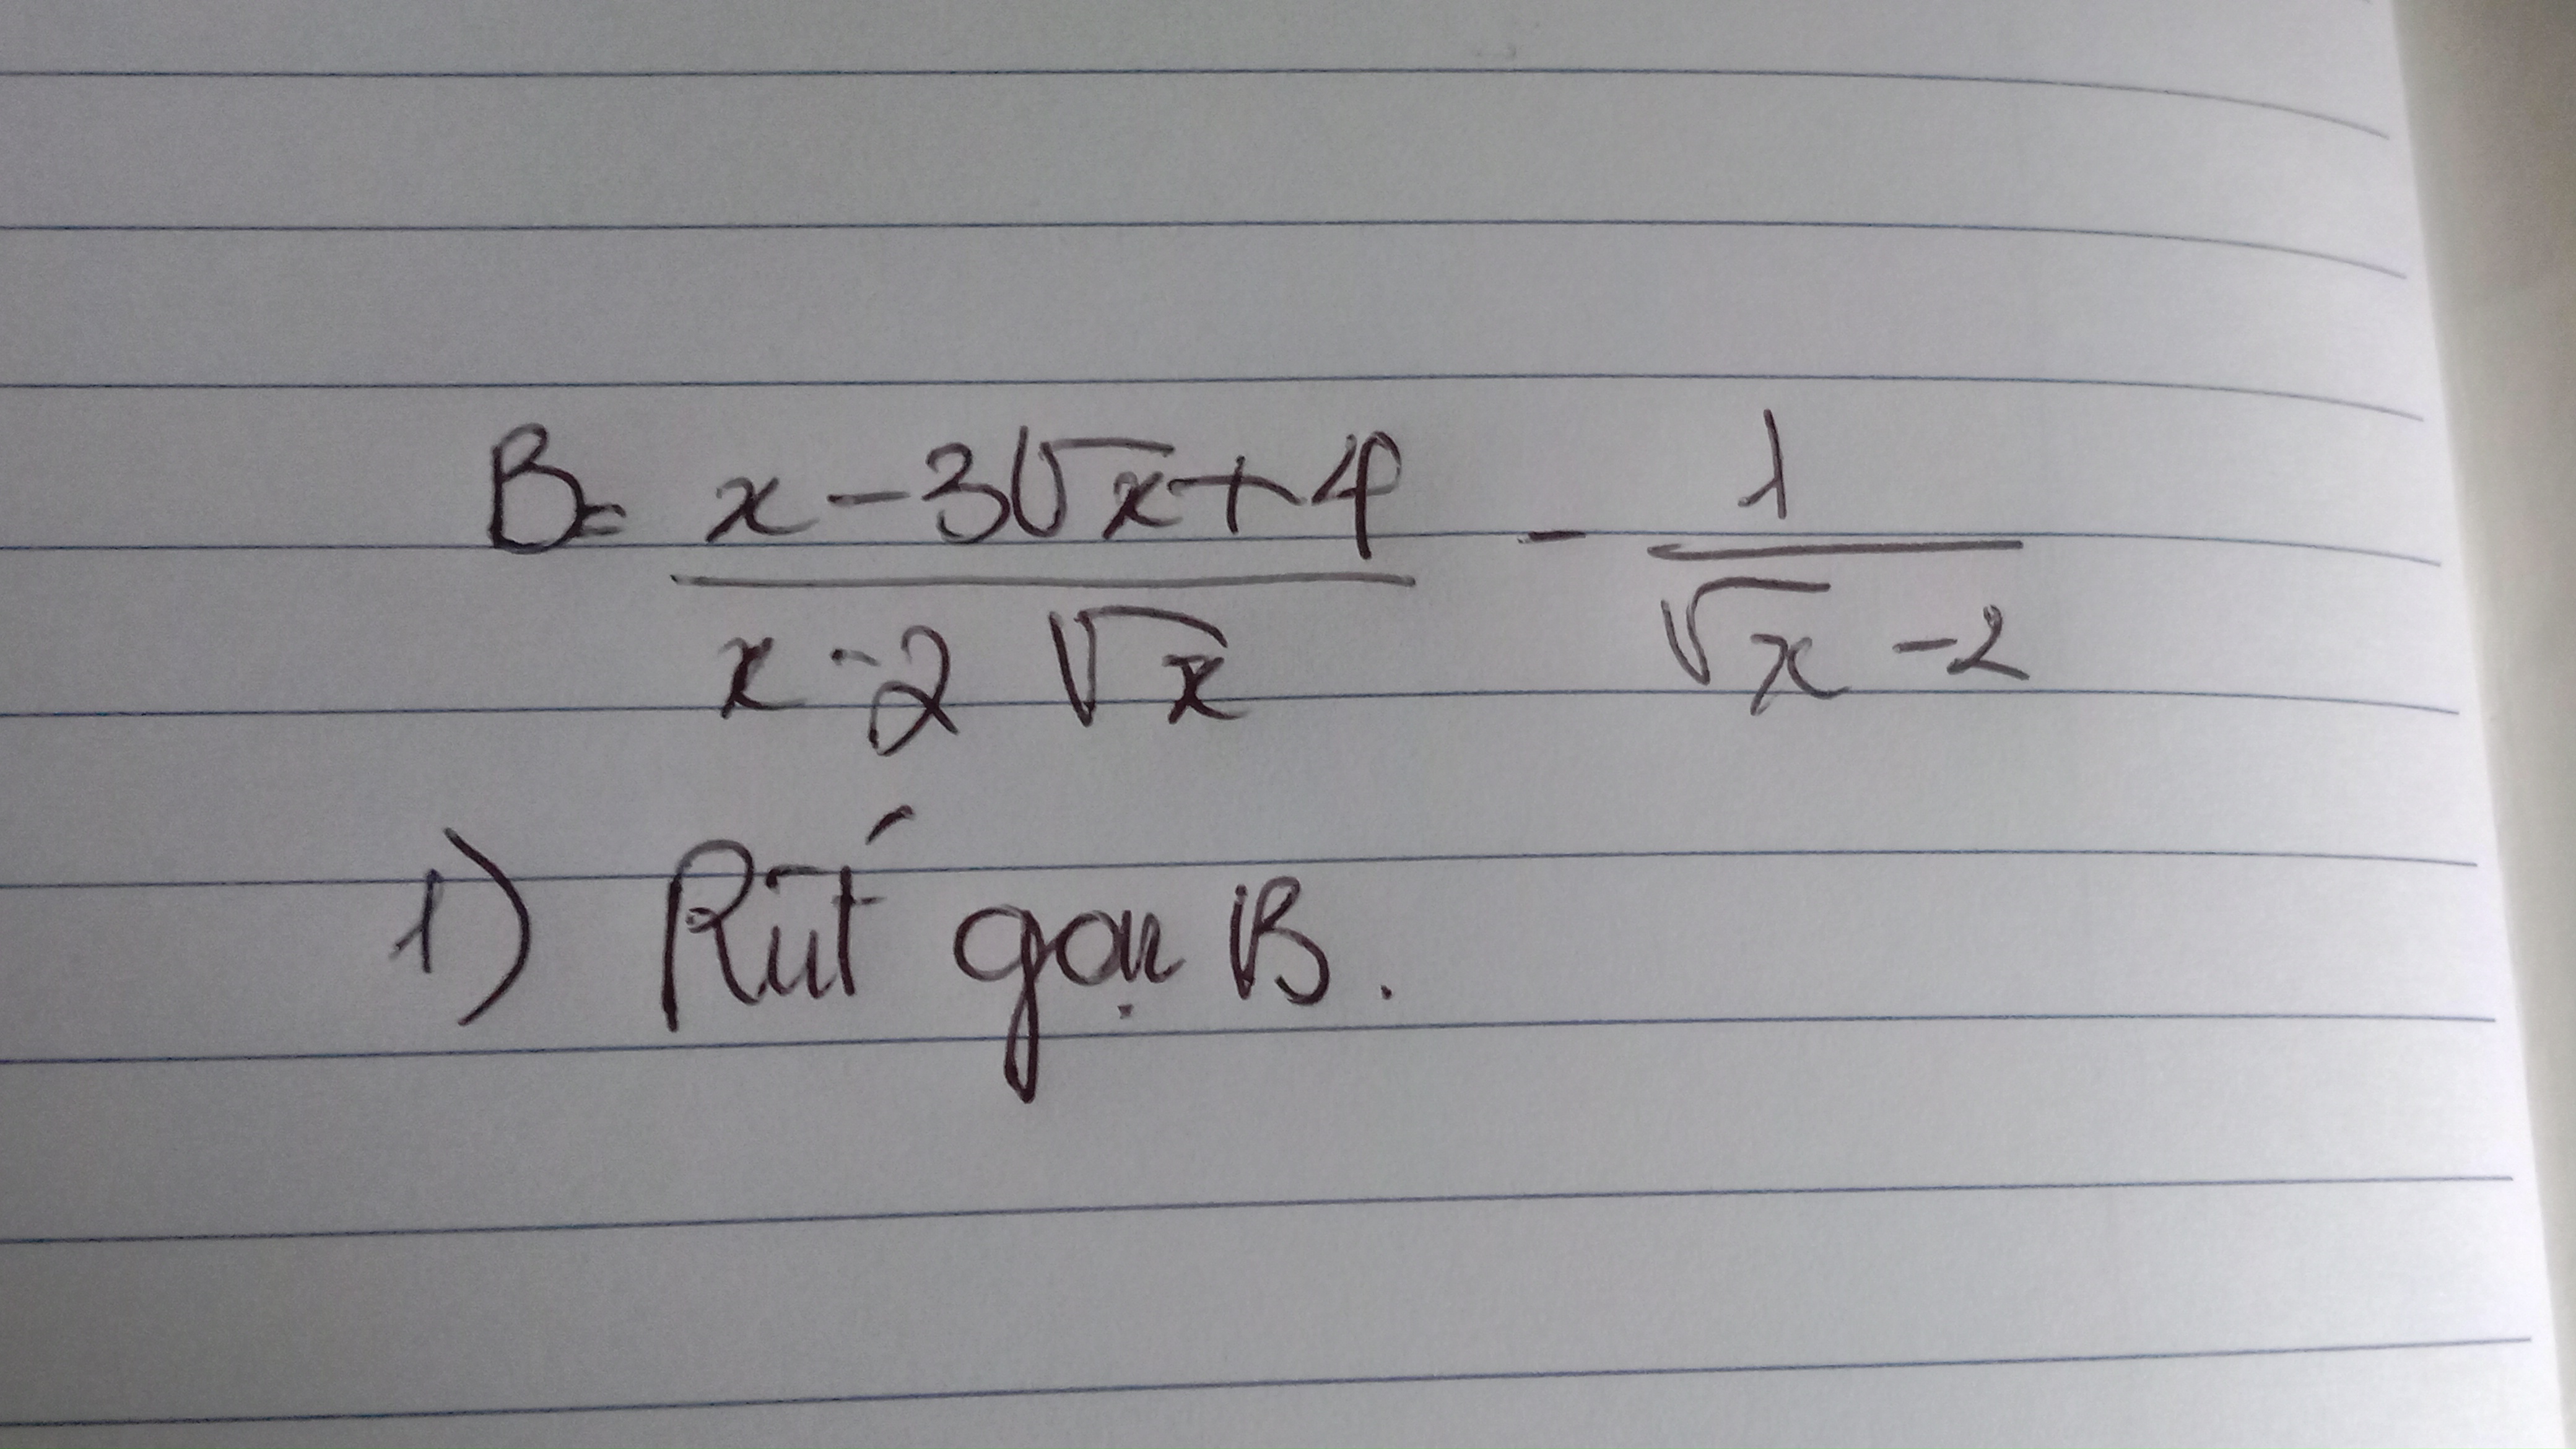 B = \frac{x - 3\sqrt{x} + 4}{x - 2\sqrt{x}} - \frac{1}{\sqrt{x} - 2}
1) Rút gọn B.